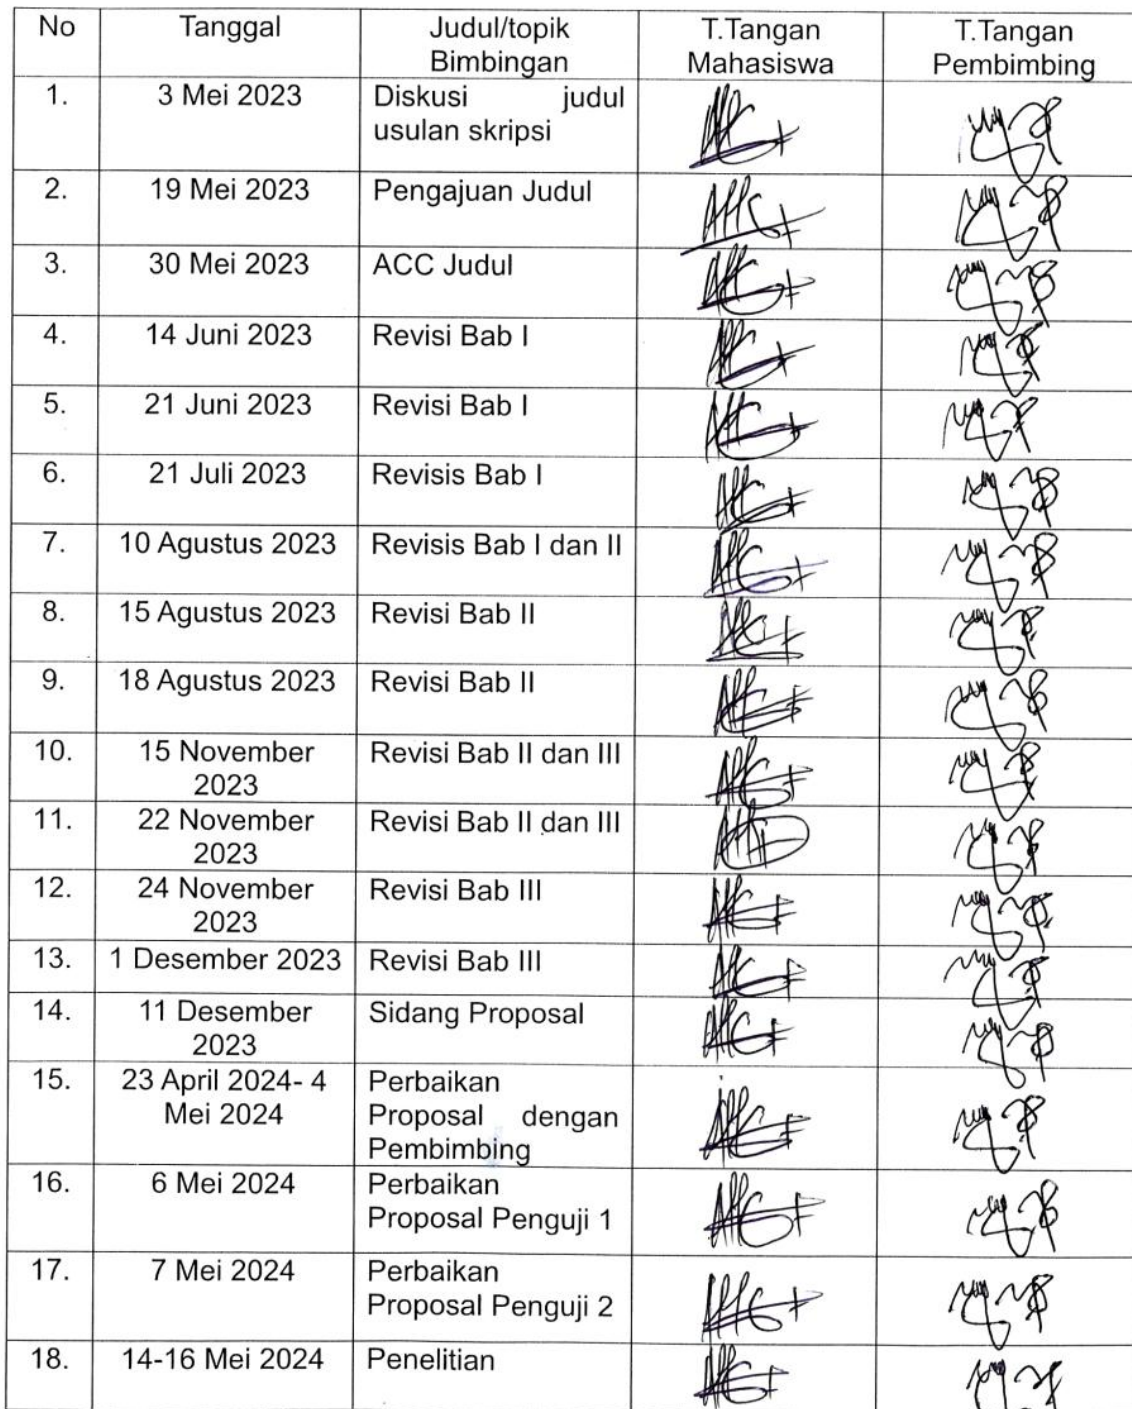 No Tanggal Judul/topik Bimbingan T.Tangan Mahasiswa T.Tangan Pembimbing
1. 3 Mei 2023 Diskusi judul usulan skripsi
2. 19 Mei 2023 Pengajuan Judul
3. 30 Mei 2023 ACC Judul
4. 14 Juni 2023 Revisi Bab I
5. 21 Juni 2023 Revisi Bab I
6. 21 Juli 2023 Revisis Bab I
7. 10 Agustus 2023 Revisis Bab I dan II
8. 15 Agustus 2023 Revisi Bab II
9. 18 Agustus 2023 Revisi Bab II
10. 15 November 2023 Revisi Bab II dan III
11. 22 November 2023 Revisi Bab II dan III
12. 24 November 2023 Revisi Bab III
13. 1 Desember 2023 Revisi Bab III
14. 11 Desember 2023 Sidang Proposal
15. 23 April 2024- 4 Mei 2024 Perbaikan Proposal dengan Pembimbing
16. 6 Mei 2024 Perbaikan Proposal Penguji 1
17. 7 Mei 2024 Perbaikan Proposal Penguji 2
18. 14-16 Mei 2024 Penelitian